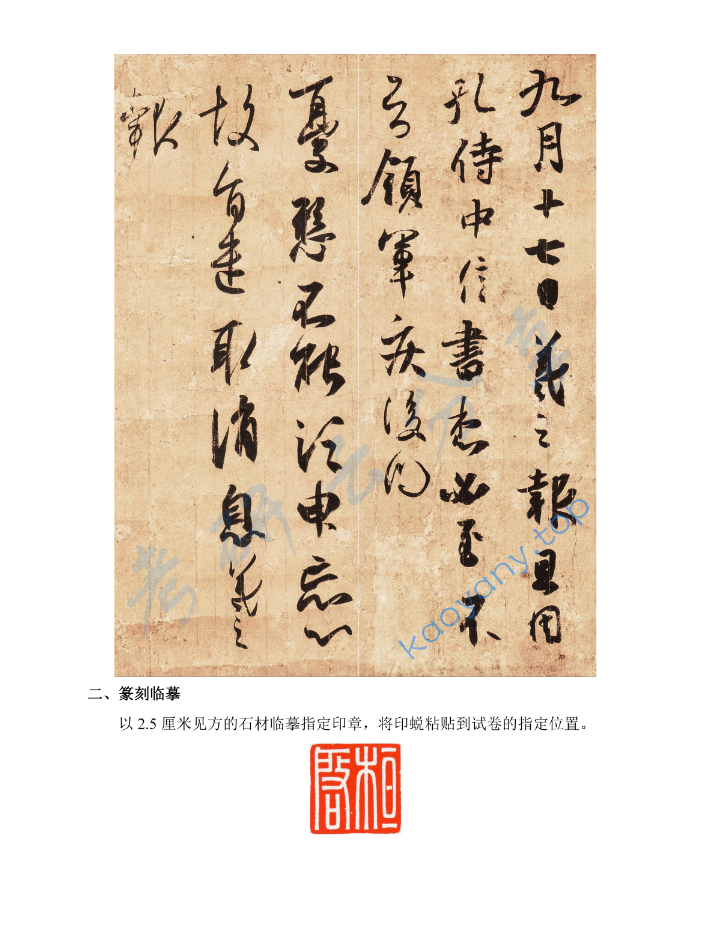 九月十七日羲之報且因
孔侍中信書想必至不
知領軍疾後問
憂懸不能須臾忘心
故旨遣取消息羲之
報
kaoyany.top
二、篆刻临摹
以 2.5 厘米见方的石材临摹指定印章，将印蜕粘贴到试卷的指定位置。